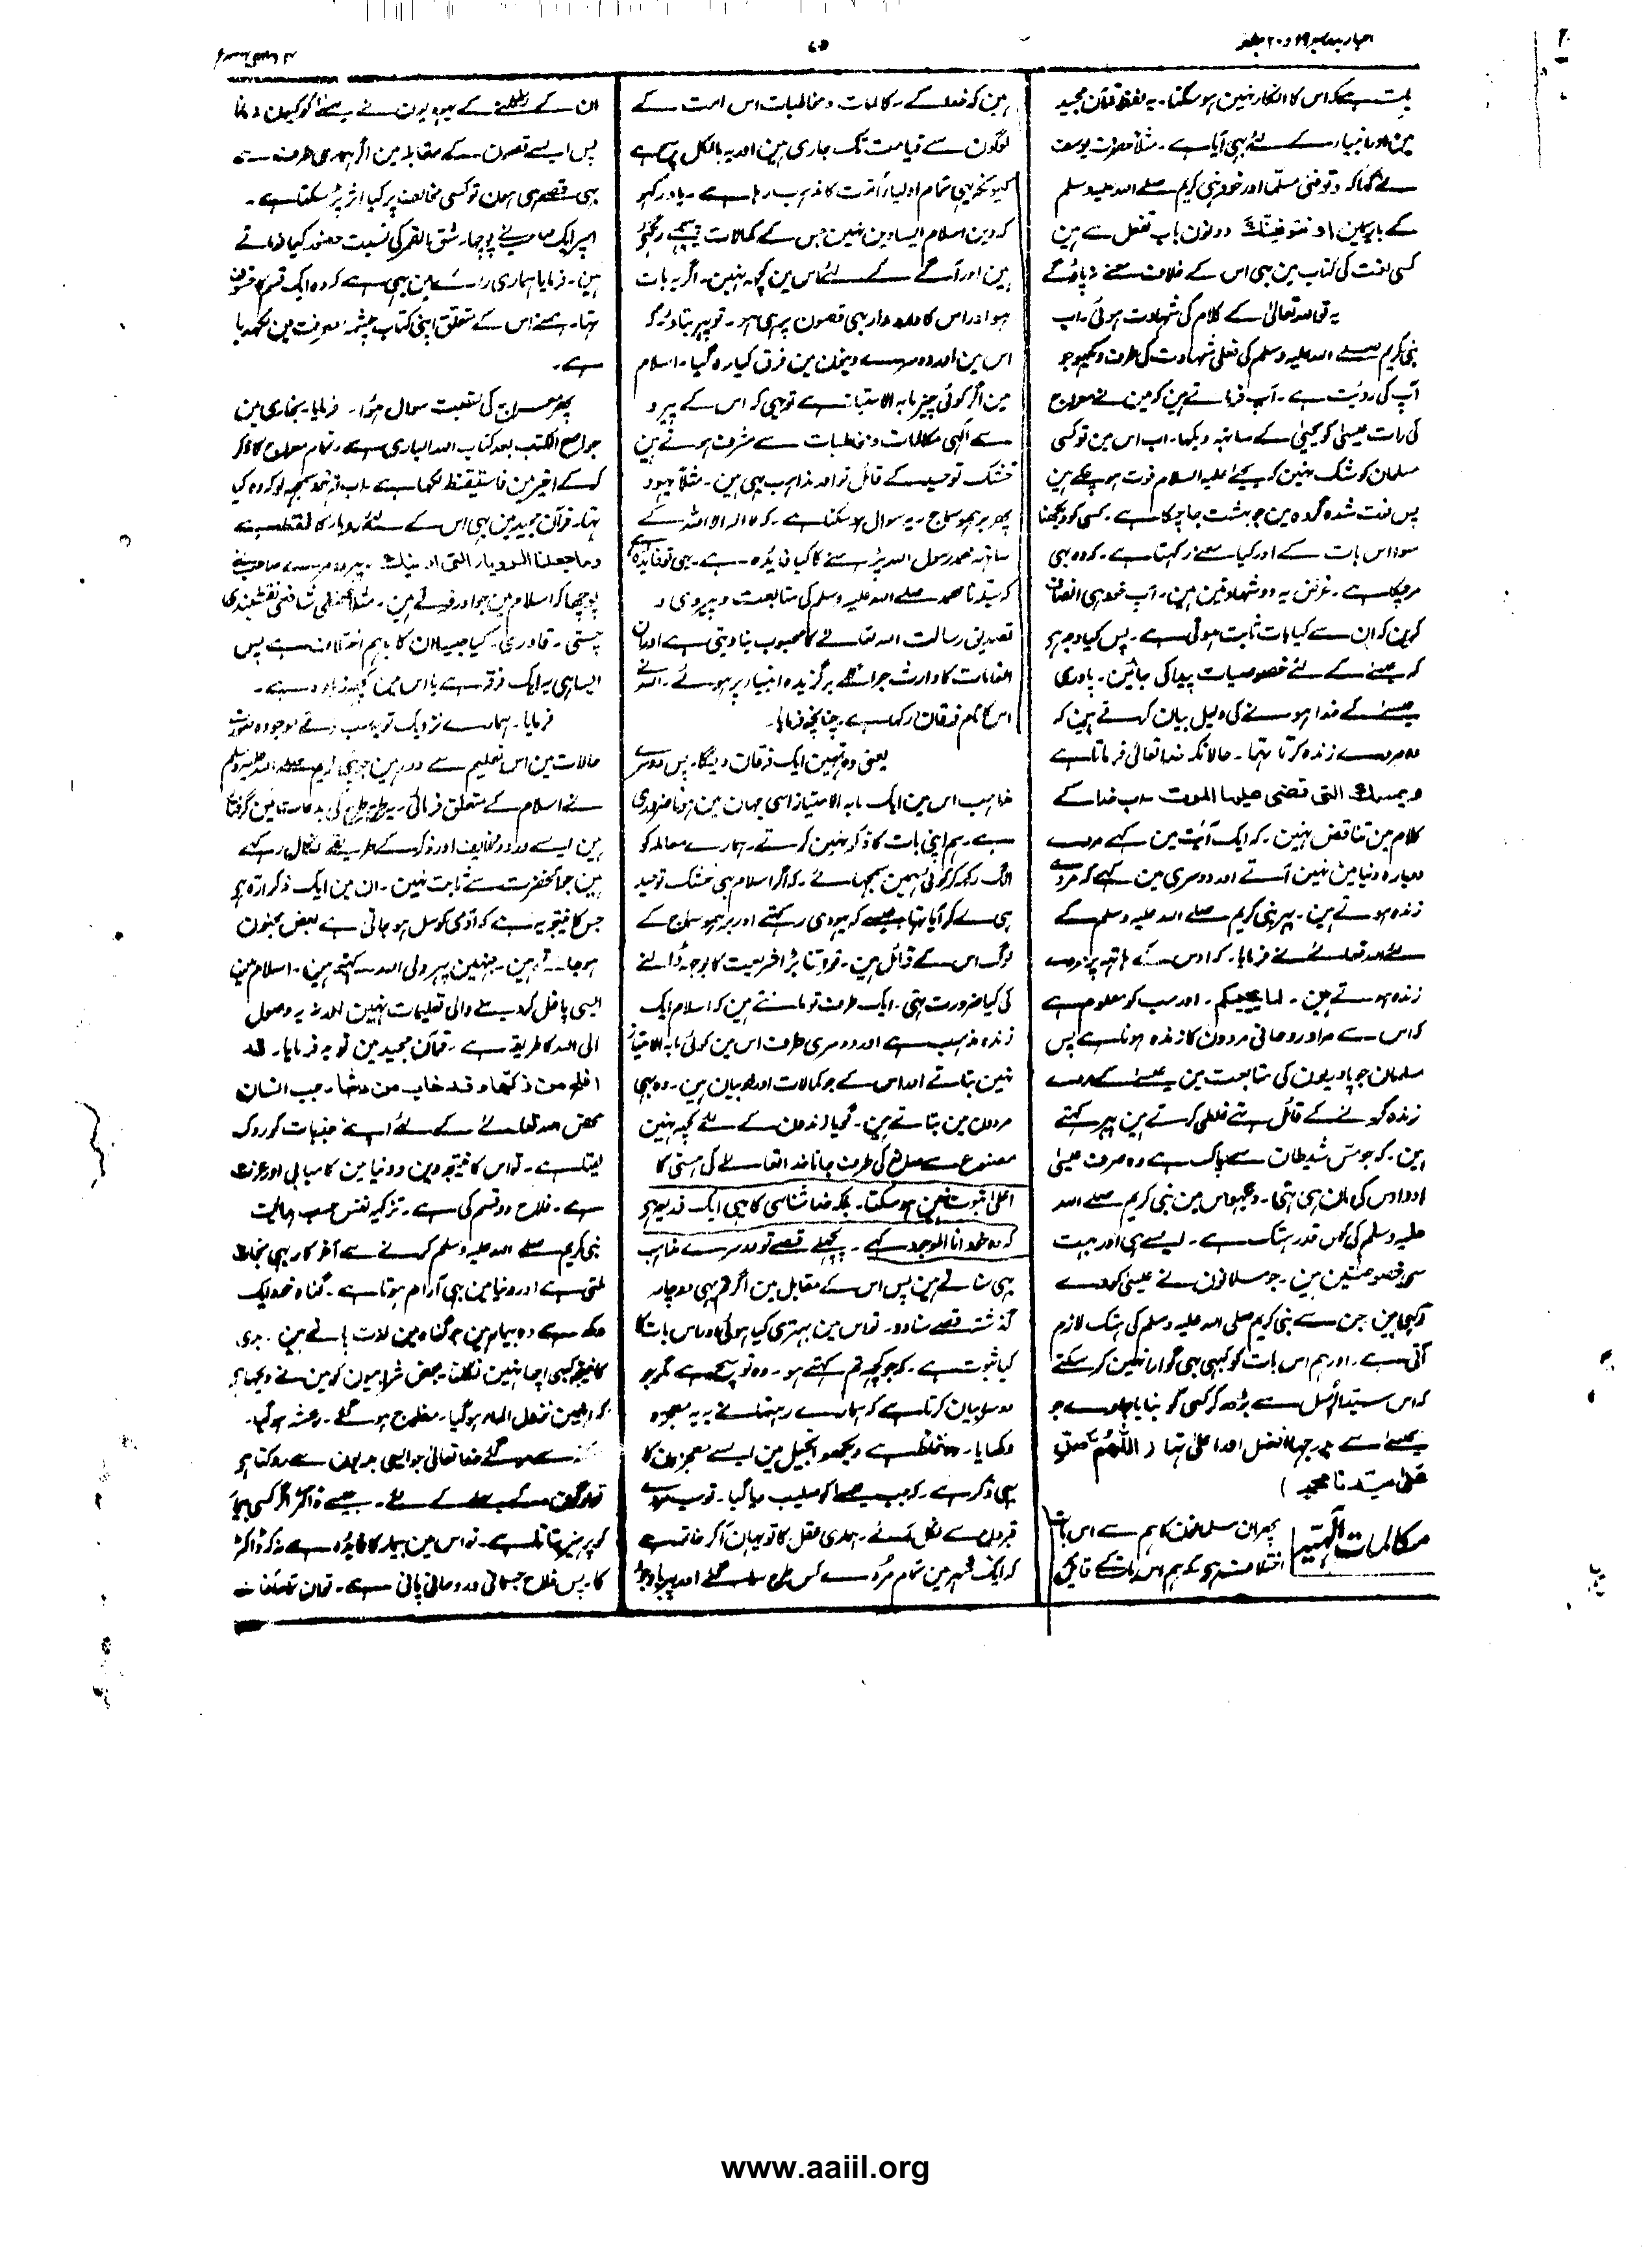 اخبار بدر نمبر ۱۹ و ۲۰ جلد
بات ہے کہ اس کا انکار نہین ہو سکتا۔ یہ لفظ قرآن مجید
مین اور انبیاء کے لئے بہی آیا ہے۔ مثلاً حضرت یوسف
نے کہا کہ توفنی مسلما اور خود نبی کریم صلے اللہ علیہ وسلم
کے بارہ مین او نتوفینک دونون باب تفعل سے ہین
کسی لغت کی کتاب مین بہی اس کے خلاف معنے نہ پاؤ گے
یہ تو اللہ تعالیٰ کے کلام کی شہادت ہوئی۔ اب
نبی کریم صلے اللہ علیہ وسلم کی فعلی شہادت کی طرف دیکہو جو
آپ کی رویت ہے۔ آپ فرماتے ہین کہ مین نے معراج
کی رات عیسیٰ کو یحییٰ کے ساتہہ دیکہا۔ اب اس مین تو کسی
مسلمان کو شک نہین کہ یحیےٰ علیہ السلام فوت ہو چکے ہین
پس فوت شدہ گروہ مین جو بہشت جا چکا ہے۔ کسی کو دیکہنا
سوا اس بات کے اور کیا معنے رکہتا ہے۔ کہ وہ بہی
مر چکا ہے۔ غرض یہ دو شہادتین ہین۔ آپ خود ہی انصاف
کرین کہ ان سے کیا بات ثابت ہوتی ہے۔ پس کیا وجہ ہے
کہ عیسےٰ کے لئے خصوصیات پیدا کی جائین۔ پادری
عیسےٰ کے خدا ہونے کی دلیل بیان کرتے ہین کہ
وہ مردے زندہ کرتا تہا۔ حالانکہ خدا تعالیٰ فرماتا ہے
ویمسک التی قضی علیہا الموت۔ اب خدا کے
کلام مین تناقض نہین۔ کہ ایک آیت مین کہے مردے
دوبارہ دنیا مین نہین آتے اور دوسری مین کہے کہ مردے
زندہ ہوتے ہین۔ پہر نبی کریم صلے اللہ علیہ وسلم کے
لئے اللہ تعالےٰ نے فرمایا۔ کہ اوس کے ہاتہہ پر مردے
زندہ ہوتے ہین۔ لما یحییکم۔ اور سب کو معلوم ہے
کہ اس سے مراد روحانی مردون کا زندہ ہونا ہے پس
مسلمان جو پادریون کی متابعت مین عیسےٰ کے مردے
زندہ کرنے کے قائل تہے غلطی کرتے ہین پہر کہتے
ہین۔ کہ جو مس شیطان سے پاک ہے وہ صرف عیسیٰ
اور اوس کی مان ہی تہی۔ دیکہو اس مین نبی کریم صلے اللہ
علیہ وسلم کی کس قدر ہتک ہے۔ ایسے ہی اور بہت
سی خصوصیتین ہین۔ جو مسلمانون نے عیسیٰ کو دے
رکہی ہین۔ جن سے نبی کریم صلی اللہ علیہ وسلم کی ہتک لازم
آتی ہے۔ اور ہم اس بات کو کبہی بہی گوارا نہین کر سکتے
کہ اس سید الرسل سے بڑھ کر کسی کو بنایا جاوے جو
عیسےٰ سے بدرجہا افضل اور اعلیٰ تہا (اللّٰہم صل
علیٰ سیدنا محمد)
مکالمات الٰہیہ
پہر ان مسلمانون کا ہم سے اس بات
اختلاف ہے کہ ہم اس بات کے قائل
ہین کہ خدا کے مکالمات و مخاطبات اس امت کے
لوگون سے قیامت تک جاری ہین اور یہ بالکل سچ ہے
کیونکہ یہی تمام اولیاء امت کا مذہب رہا ہے۔ یاد رکہو
کہ دین اسلام ایسا دین نہین جس کے کمالات پیچہے رہ گئے
ہین اور آگے کے لئے اس مین کچہ نہین۔ اگر یہ بات
ہو اور اس کا دار و مدار بہی قصون پر ہی ہو۔ تو پہر بتاؤ کہ
اس مین اور دوسرے دینون مین فرق کیا رہ گیا۔ اسلام
مین اگر کوئی چیز ما بہ الامتیاز ہے تو یہی کہ اس کے پیرو
سے الٰہی مکالمات و مخاطبات سے مشرف ہوتے ہین
خشک توحید کے قائل تو اور مذاہب بہی ہین۔ مثلاً یہود
پہر برہمو سماج۔ یہ سوال ہو سکتا ہے۔ کہ لا الہ الا اللہ کے
ساتہہ محمد رسول اللہ پڑہنے کا کیا فائدہ ہے۔ یہی تو فائدہ ہے
کہ سیدنا محمد صلے اللہ علیہ وسلم کی متابعت و پیروی و
تصدیق رسالت اللہ تعالےٰ کا محبوب بنا دیتی ہے اور ان
انعامات کا وارث جو اگلے برگزیدہ انبیاء پر ہوئے۔ اللہ نے
اس کا نام فرقان رکہا ہے چنانچہ فرمایا۔
یعنی وہ تمہین ایک فرقان دیگا۔ پس دوسرے
مذاہب اس مین ایک ما بہ الامتیاز اسی جہان مین ہونا ضروری
ہے۔ ہم اپنی بات کا ذکر نہین کرتے۔ ہمارے معاملہ کو
الگ رکہہ کر کوئی ہمین سمجہائے۔ کہ اگر اسلام بہی خشک توحید
ہی لے کر آیا تہا جیسے کہ یہودی رکہتے اور برہمو سماج کے
لوگ اس کے قائل ہین۔ تو اتنا بڑا شریعت کا بوجہ ڈالنے
کی کیا ضرورت تہی۔ ایک طرف تو مانتے ہین کہ اسلام ایک
زندہ مذہب ہے اور دوسری طرف اس مین کوئی ما بہ الامتیاز
نہین بتاتے اور اس کے جو کمالات اور خوبیان ہین۔ وہ بہی
مردون مین بتاتے ہین۔ گویا زندون کے لئے کچہ نہین
مصنوع سے صانع کی طرف جانا خدا تعالےٰ کی ہستی کا
اعلیٰ ثبوت نہین ہو سکتا۔ بلکہ خدا شناسی کا یہی ایک ذریعہ ہے
کہ وہ خود انا الموجود کہے۔ پچہلے قصے تو دوسرے مذاہب
بہی سناتے ہین پس اس کے مقابل مین اگر تم بہی دو چار
گذشتہ قصے سنا دو۔ تو اس مین بہتری کیا ہوئی اور اس بات کا
کیا ثبوت ہے۔ کہ جو کچہ تم کہتے ہو۔ وہ تو سچ ہے مگر جو
دوسرا بیان کرتا ہے کہ ہمارے رہنما نے یہ یہ معجزہ
دکہایا۔ وہ غلط ہے دیکہو انجیل مین ایسے معجزون کا
بہی ذکر ہے۔ کہ جب عیسےٰ کو صلیب دیا گیا۔ تو سب مردے
قبرون سے نکل آئے۔ ہماری عقل کا تو یہان آ کر خاتمہ ہے
کہ ایک شہر مین تمام مردے کس طرح سما گئے اور پہر باوجود
ان کے نکلنے کے یہودیون نے عیسےٰ کو کیون نہ مانا
پس ایسے قصون کے مقابلہ مین اگر ہماری طرف سے
بہی قصے ہی ہون تو کسی مخالف پر کیا اثر پڑ سکتا ہے۔
پہر ایک صاحب نے پوچہا۔ شق القمر کی نسبت حضور کیا فرماتے
ہین۔ فرمایا ہماری رائے مین یہی ہے کہ وہ ایک قسم کا خسوف
تہا۔ ہم نے اس کے متعلق اپنی کتاب چشمہ معرفت مین لکہہ دیا
ہے۔
پہر معراج کی نسبت سوال ہوا۔ فرمایا۔ بخاری مین
جو اصح الکتب بعد کتاب اللہ الباری ہے۔ تمام معراج کا ذکر
کر کے اخیر مین فاستیقظ لکہا ہے۔ اب تم خود سمجہہ لو کہ وہ کیا
تہا۔ قرآن مجید مین بہی اس کے لئے رویا کا لفظ ہے
وما جعلنا الرویا التی اریناک۔ پہر دوسرے صاحب نے
پوچہا کہ اسلام مین جو اور فرقے ہین۔ مثلاً حنفی شافعی نقشبندی
چشتی۔ قادری۔ کیا جیسا ان کا باہم اختلاف ہے پس
ایسا ہی یہ ایک فرقہ ہے یا اس مین کچہ زیادہ ہے۔
فرمایا۔ ہمارے نزدیک تو یہ سب فرقے موجودہ صورت
حالات مین اس تعلیم سے دور ہین جو نبی کریم صلے اللہ علیہ وسلم
نے اسلام کے متعلق فرمائی۔ طرح طرح کی بدعات مین گرفتار
ہین ایسے ورد وظائف اور ذکر کے طریقے نکال رکہے
ہین جو آنحضرت سے ثابت نہین۔ ان مین ایک ذکر ارہ ہے
جس کا نتیجہ یہ ہے کہ آدمی کو سل ہو جاتی ہے بعض مجنون
ہو جاتے ہین۔ جنہین پہر ولی اللہ کہتے ہین۔ اسلام مین
ایسی پاگل کر دینے والی تعلیمات نہین اور نہ یہ وصول
الی اللہ کا طریقہ ہے۔ قرآن مجید مین تو یہ فرمایا۔ قد
افلح من زکّٰہا و قد خاب من دسّٰہا۔ جب انسان
محض اللہ تعالےٰ کے لئے اپنے جذبات کو روک
لیتا ہے۔ تو اس کا نتیجہ دین و دنیا مین کامیابی اور عزت
ہے۔ فلاح دو قسم کی ہے۔ تزکیہ نفس حسب ہدایت
نبی کریم صلے اللہ علیہ وسلم کرنے سے آخر کار بہی نجات
ملتی ہے اور دنیا مین بہی آرام ہوتا ہے۔ گناہ خود ایک
دکہہ ہے وہ بیمار ہین جو گناہ مین لذت پاتے ہین۔ بدی
کا نتیجہ کبہی اچہا نہین نکلتا۔ بعض شرابیون کو مین نے دیکہا ہے
کہ انہین نزول الماء ہو گیا۔ مفلوج ہو گئے۔ رعشہ ہو گیا۔
سے مر گئے خدا تعالیٰ جو ایسی بدیون سے روکتا ہے
تو لوگون کے بہلے کے لئے۔ جیسے ڈاکٹر اگر کسی بیمار
کو پرہیز بتاتا ہے۔ تو اس مین بیمار کا فائدہ ہے نہ کہ ڈاکٹر
کا۔ پس فلاح جسمانی و روحانی پانی ہے۔ تو ان تمام
www.aaiil.org